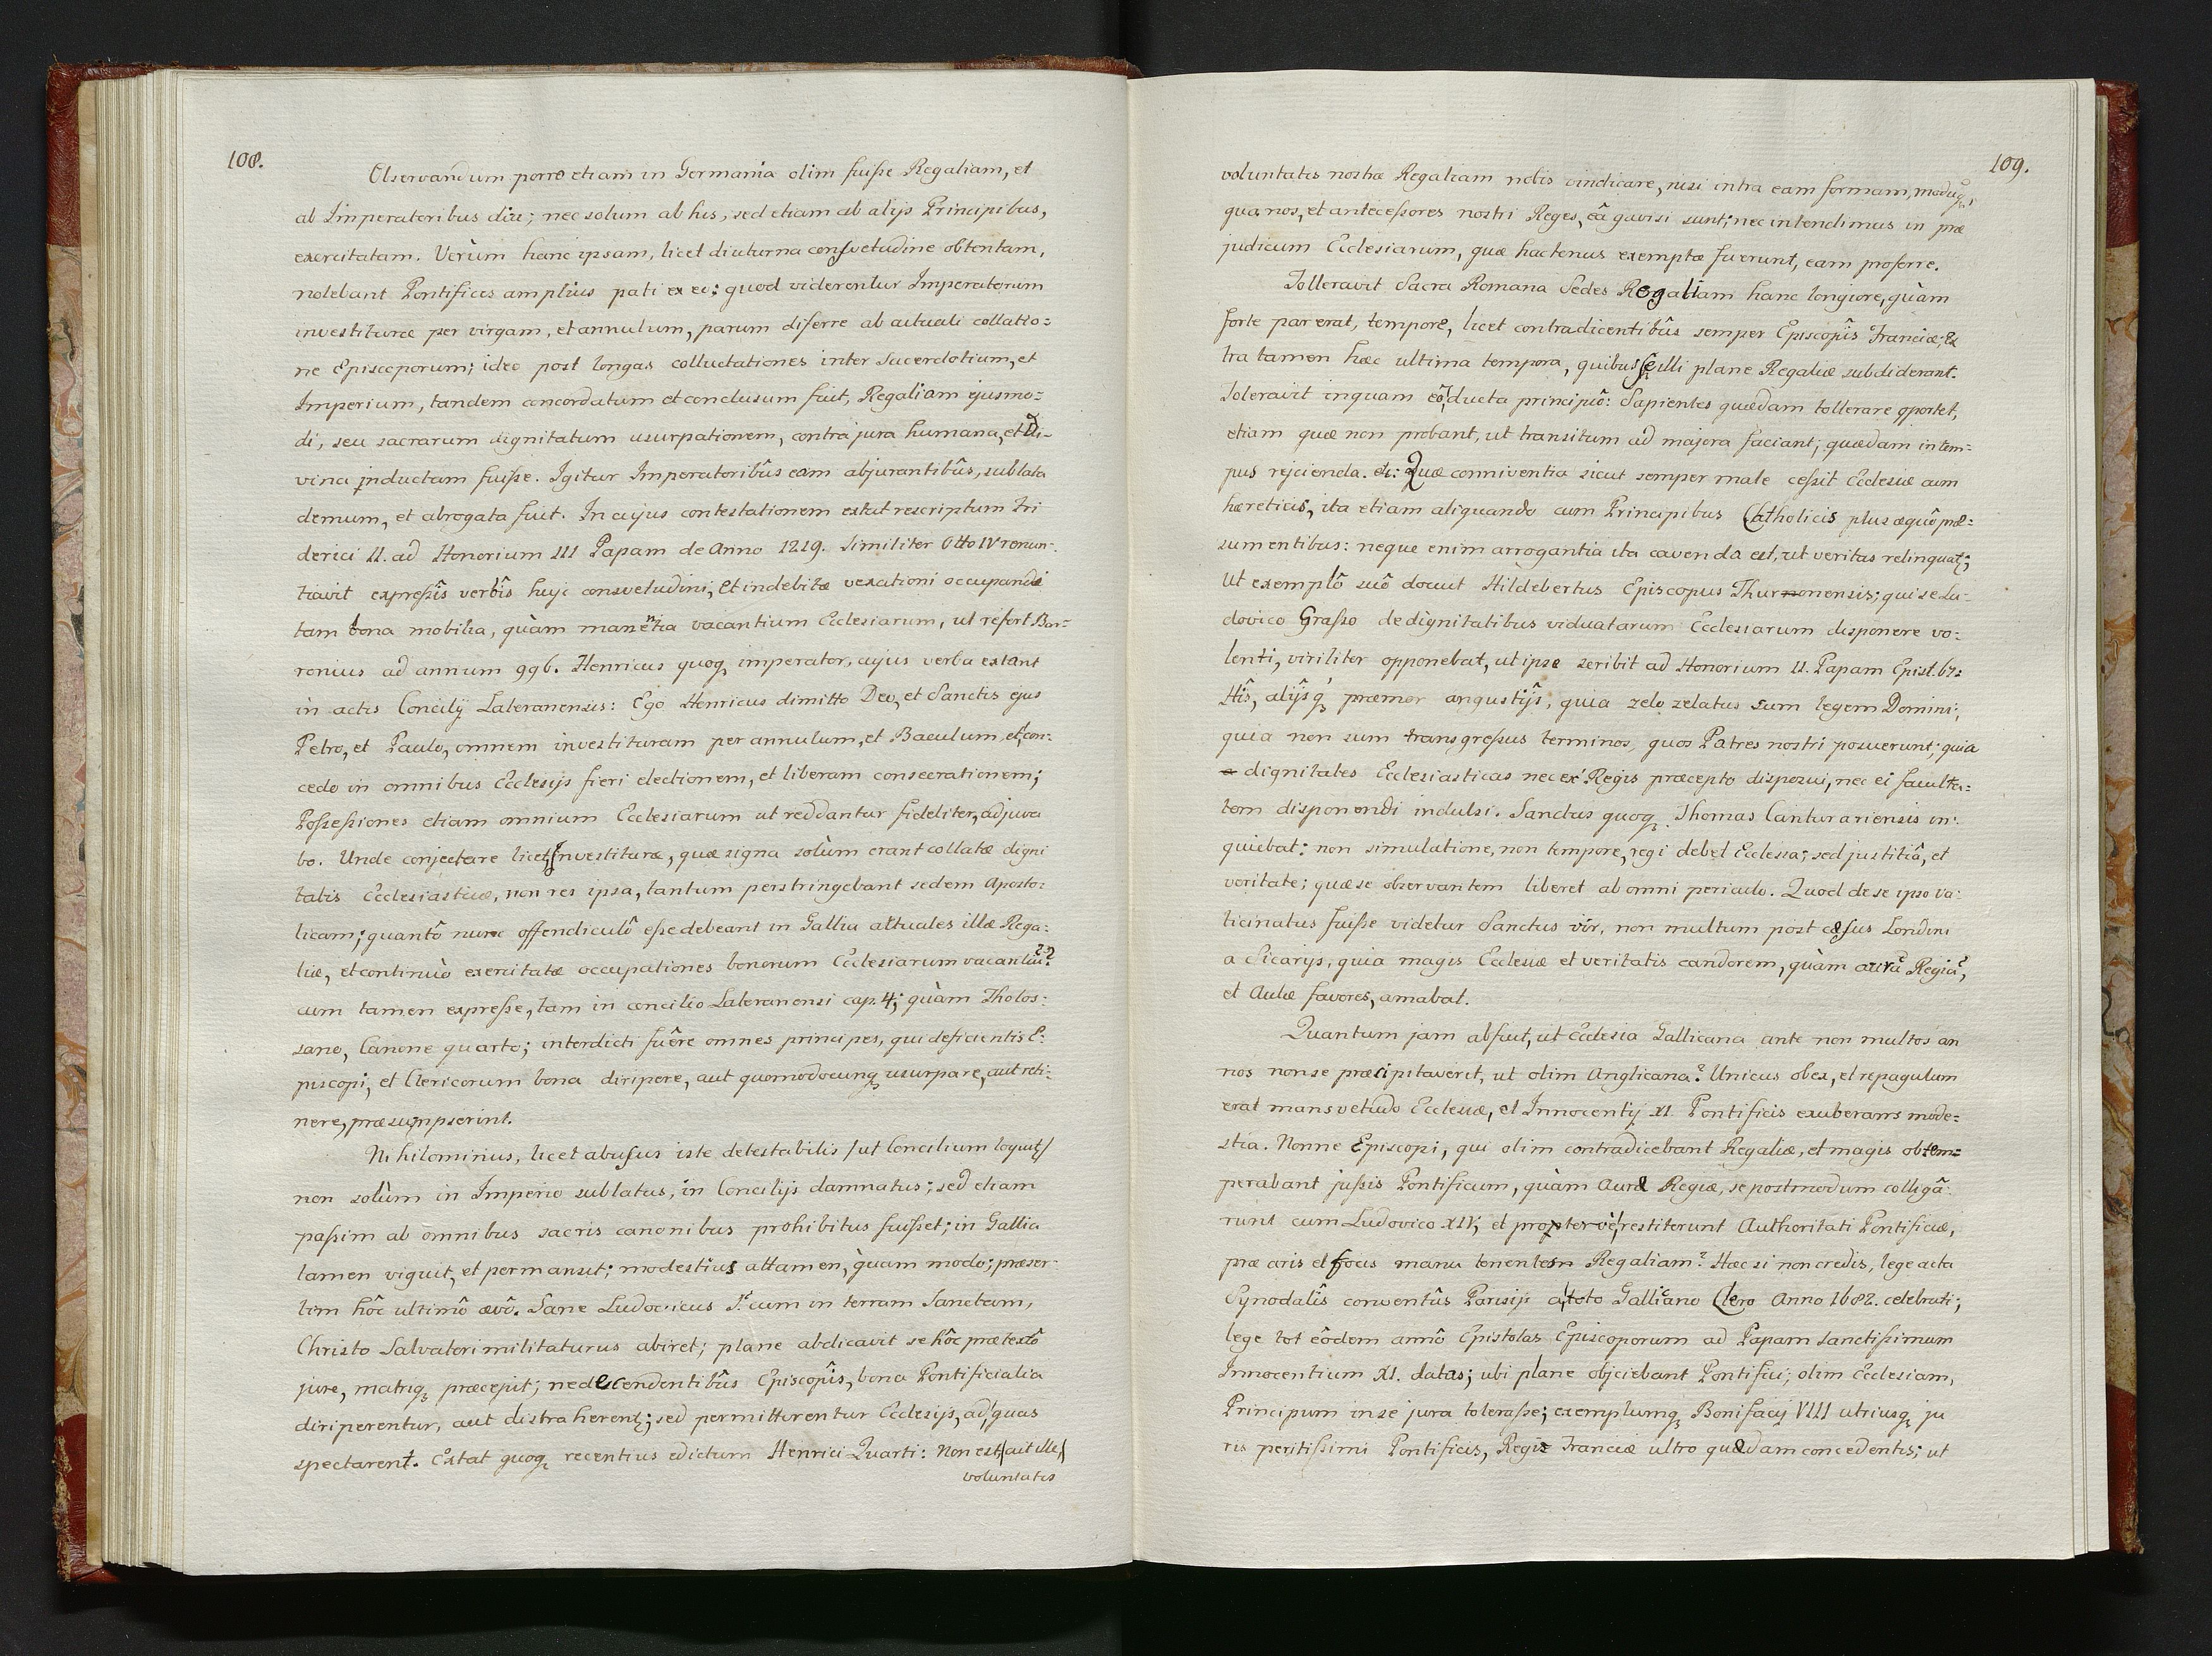 108.
Observandum porro etiam in Germania olim fuiſse Regaliam, et
ab Imperatoribus diu; nec solum ab his, sed etiam ab alijs Principibus,
exercitatam. Verùm hanc ipsam, licet diuturna consvetudine obtentam,
nolebant Pontifices amplius pati ex eo: quod viderentur Imperatorum
investituræ per virgam, et annulum, parum diferre ab actuali collatio=
ne Episcoporum; ideo post longas colluctationes inter Sacerdotium, et
Imperium, tandem concordatum et conclusum fuit, Regaliam ejusmo=
di, seu sacrarum dignitatum usurpationem, contra jura humana, et Di-
vina inductam fuiſse. Igitur Imperatoribûs eam abjurantibûs, sublata
demum, et abrogata fuit. In cujus contestationem extat rescriptum Fri
derici II. ad Honorium III Papam de Anno 1219. Similiter Otto IV renun=
tiavit expreſsîs verbîs huic consvetudini, et indebitæ vexationi occupandi
tam bona mobilia, quàm manentia vacantium Ecclesiarum, ut refert Ba=
ronius ad annum 996. Henricus quoqȝ imperator, cujus verba extant
in actis Concilij Lateranensis: Ego Henricus dimitto Deo, et Sanctis ejus
Petro, et Paulo, omnem investituram per annulum, et Baculum et con=
cedo in omnibus Ecclesijs fieri electionem, et liberam consecrationem;
Poſseſsiones etiam omnium Ecclesiarum ut reddantur fideliter, adjuva
bo. Unde conjectare licet, Investituræ, quæ signa solùm erant collatæ digni
tatis Ecclesiasticæ, non res ipsa, tantum perstringebant sedem Aposto=
licam; quantô nunc offendiculô eſse debeant in Gallia actuales illæ Rega=
liæ, et continuò exercitatæ occupationes bonorum Ecclesiarum vacantiũ?
cum tamen expreſse, tam in concilio Lateranensi cap. 4; quàm Tholos=
sano, Canone quarto; interdicti fuêre omnes principes, qui deficientis E=
piscopi, et Clericorum bona diripere, aut quomodocunqȝ usurpare, aut reti=
nere, præsumpserint.
Nihilominus, licet abusus iste detestabilis /ut Concilium loquitȝ/
non solùm in Imperio sublatus, in Concilijs damnatus; sed etiam
paſsim ab omnibus sacris canonibus prohibitus fuiſset; in Gallia
tamen viguit, et permansit; modestius attamen, quàm modo; præser=
tim hôc ultimô ævô. Sane Ludovicus S. cum in terram Sanctam,
Christo Salvatori militaturus abiret; plane abdicavit se hôc prætextô
jure, matriqȝ præcepit; ne decendentibûs Episcopîs, bona Pontificialia
diriperentur, aut distraherentȝ; sed permitterentur Ecclesijs, ad quas
spectarent. Extat quoqȝ recentius edictum Henrici Quarti: Non est /ait ille/
voluntatis
109.
voluntatis nostræ Regaliam nobis vindicare, nisi intra eam formam, modũqȝ,
qua nos, et antecessores nostri Reges, eâ gavisi sunt; nec intendimus in præ
judicium Ecclesiarum, quæ hactenus exemptæ fuerunt, eam proferre.
Tolleravit Sacra Romana Sedes Regaliam hanc longiore, quàm
forte par erat, tempore, licet contradicentibûs semper Episcopîs Franciæ; Ex
tra tamen hæc ultima tempora, quibus se illi plane Regaliæ subdiderant.
Toleravit inquam eô ducta principiô: Sapientes quædam tollerare oportet,
etiam quæ non probant, ut transitum ad majora faciant; quædam in tem=
pus rejicienda. etc: Quæ conniventia sicut semper male ceſsit Ecclesiæ cum
hæreticis, ita etiam aliquando cum Principibus Catholicis plus æquô præ=
sumentibus: neque enim arrogantia ita cavenda est, ut veritas relinquatȝ;
Ut exemplô suô docuit Hildebertus Episcopus Thuronensis; qui se Lu=
dovico Graſso de dignitatibus viduatarum Ecclesiarum disponere vo=
lenti, viriliter opponebat, ut ipse scribit ad Honorium II. Papam Epist. 67:
Hîs, alijsqȝ præmor angustijs, quia zelo zelatus sum legem Domini;
quia non sum transgreſsus terminos, quos Patres nostri posuerunt; quia
dignitates Ecclesiasticas nec ex Regis præcepto disposui, nec ei faculta=
tem disponendi indulsi. Sanctus quoqȝ Thomas Canturariensis in=
quiebat: non simulatione, non tempore, regi debet Ecclesia; sed justitiâ, et
veritate; quæ se observantem liberet ab omni periculo. Quod de se ipso va=
ticinatus fuiſse videtur Sanctus vir, non multum post cæsus Londini
a Sicarijs, quia magis Ecclesiæ et veritatis candorem, quàm aurã Regiã,
et Aulæ favores, amabat.
Quantum jam abfuit, ut Ecclesia Gallicana ante non multos an
nos non se præcipitaverit, ut olim Anglicana? Unicus obex, et repagulum
erat mansvetudo Ecclesiæ, et Innocentij XI. Pontificis exuberans mode=
stia. Nonne Episcopi, qui olim contradicebant Regaliæ, et magis obtem=
perabant juſsis Pontificum, quàm Auræ Regiæ, se postmodum colligâ=
runt cum Ludovico XIV, et proptervè restiterunt Authoritati Pontificiæ,
præ aris et focis manu tenentes Regaliam? Hæc si non credis, lege acta
Synodalîs conventûs Parisijs a toto Gallicano Clero Anno 1682. celebrati;
lege tot eôdem annô Epistolas Episcoporum ad Papam sanctiſsimum
Innocentium XI. datas; ubi plane objiciebant Pontifici; olim Ecclesiam,
Principum in se jura toleraſse; exemplumqȝ Bonifacij VIII utriusqȝ ju
ris peritiſsimi Pontificis, Regis Franciæ ultro quædam concedentis; ut